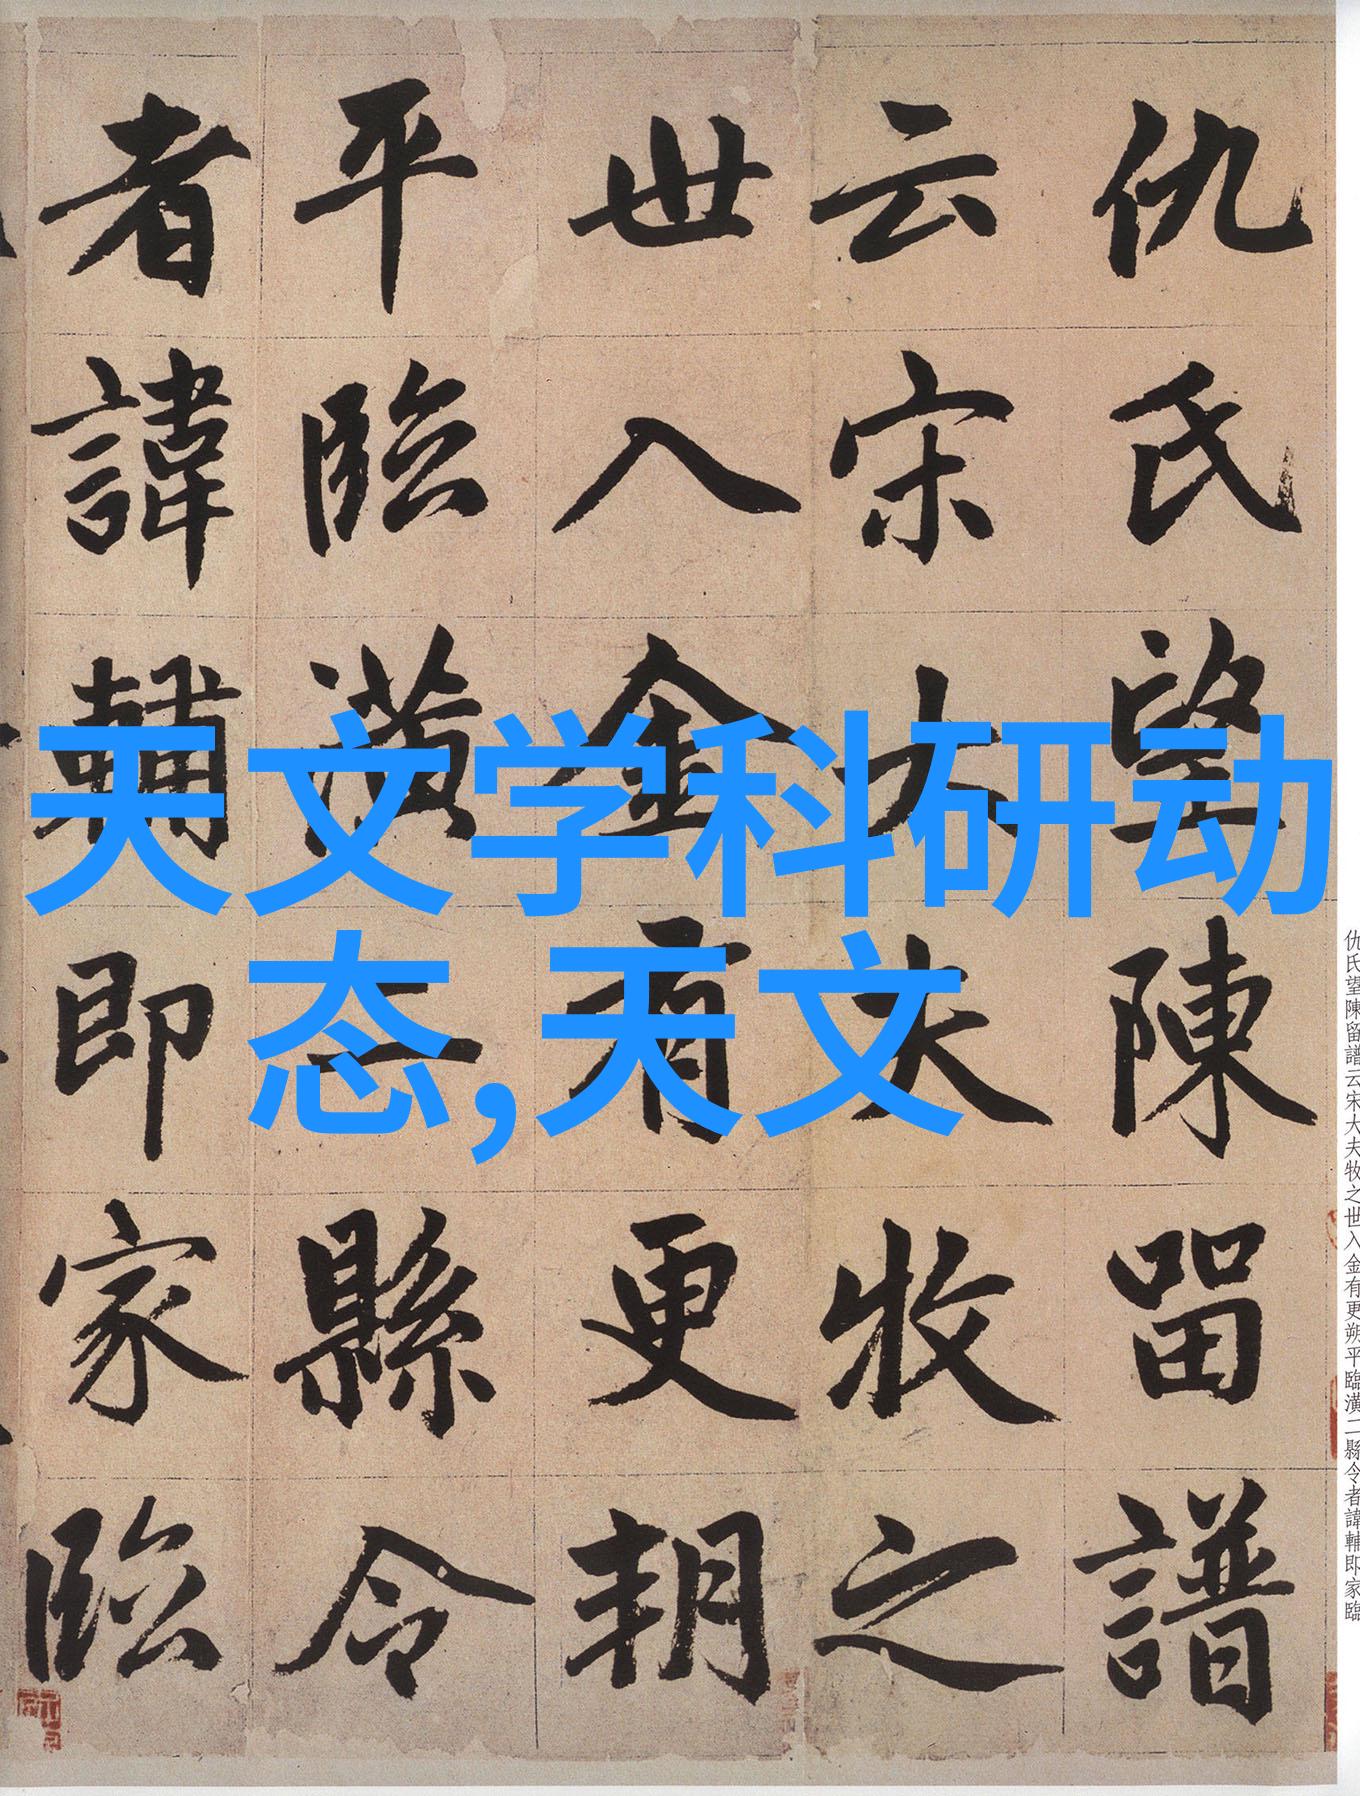 仇氏望陳留譜
云宋大夫牧之
世入金有更朔
平臨潢二縣令
者諱輔即家臨
天文学科研动
态,天文
仇氏望陳留譜云宋大夫牧之世入金有更朔平臨潢二縣令者諱輔即家臨